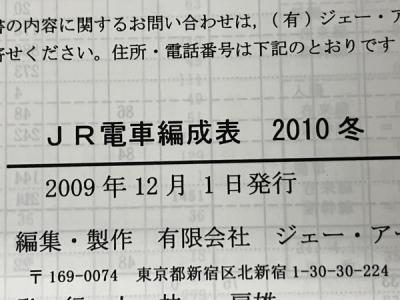 書の内容に関するお問い合わせは，（有）ジェー・ア
寄せください。住所・電話番号は下記のとおりです
ＪＲ電車編成表　2010 冬
2009 年 12 月　1 日発行
編集・製作　有限会社　ジェー・アー
〒169-0074　東京都新宿区北新宿 1-30-30-224